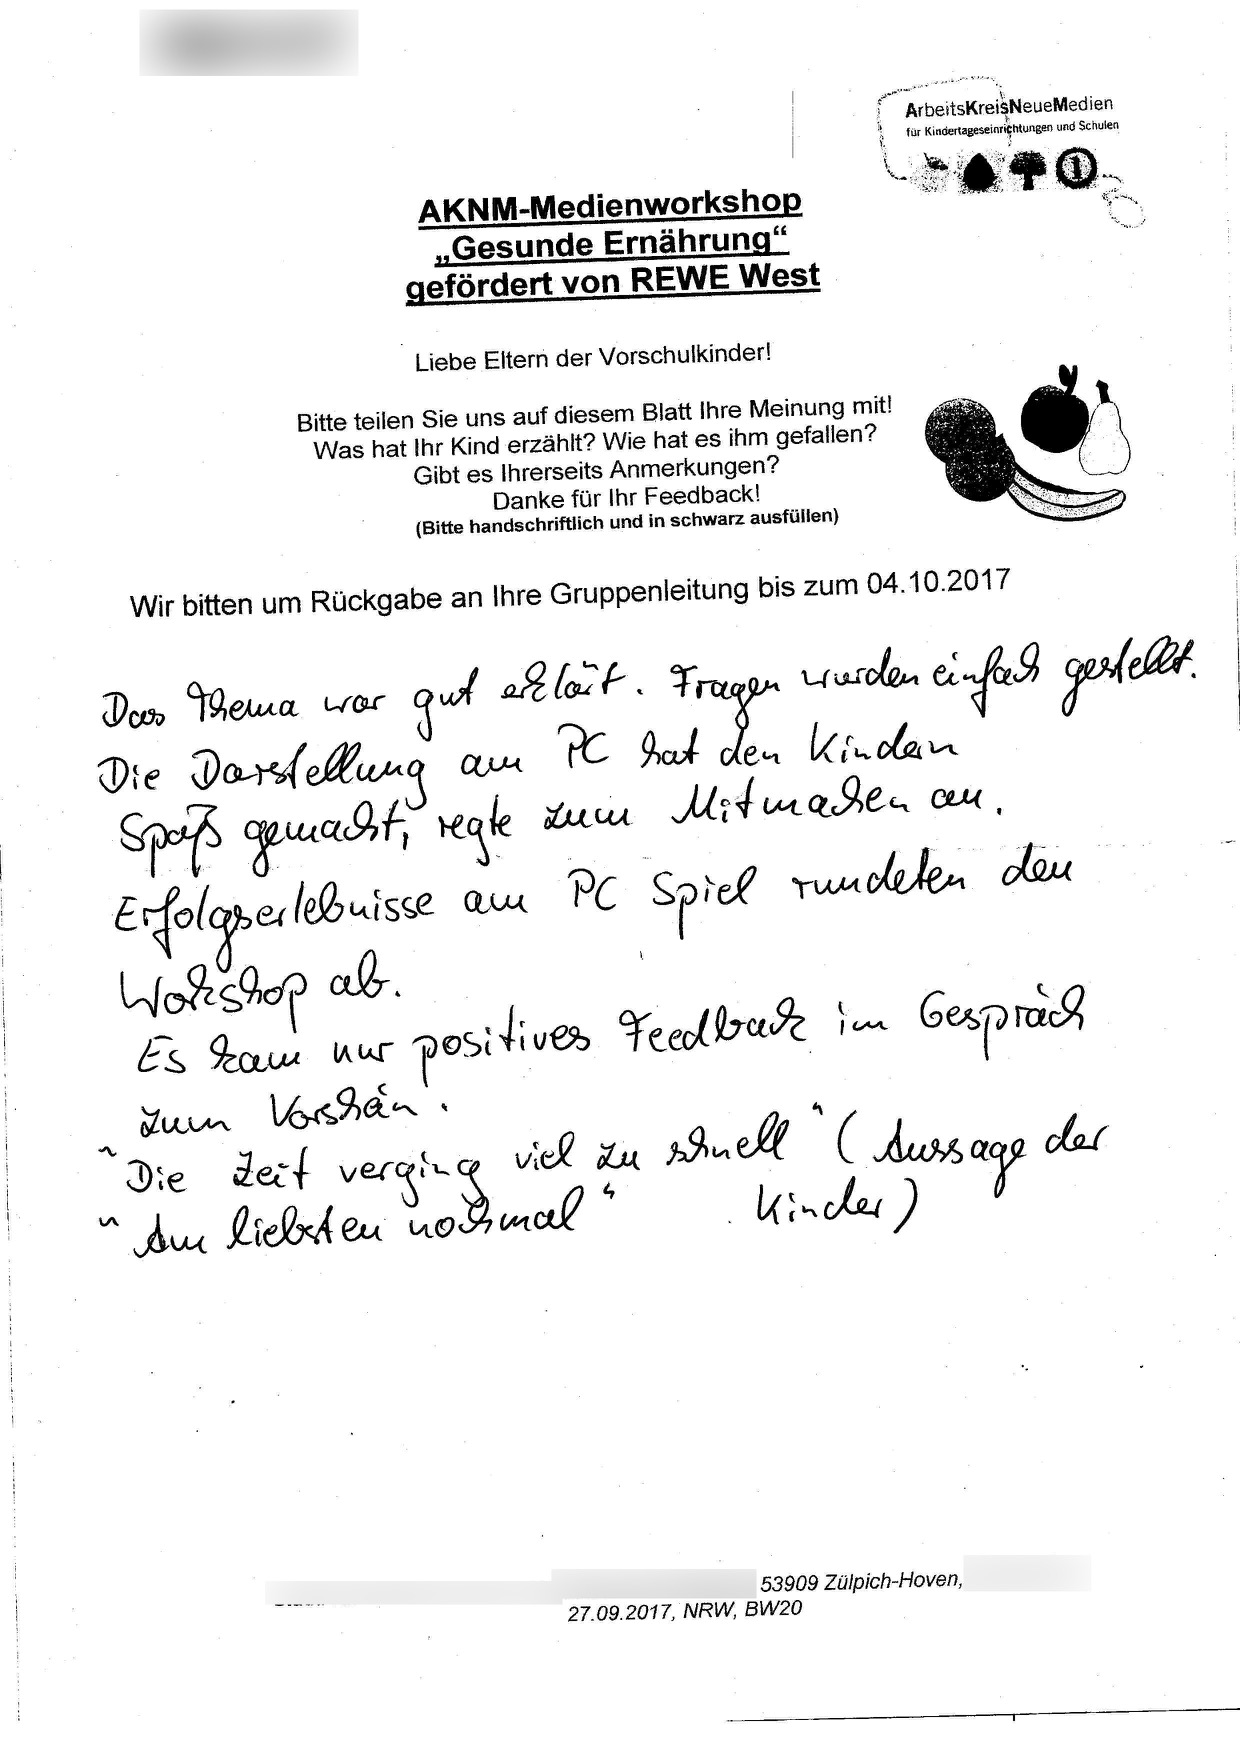 ArbeitsKreisNeueMedien
für Kindertageseinrichtungen und Schulen
AKNM-Medienworkshop
„Gesunde Ernährung“
gefördert von REWE West
Liebe Eltern der Vorschulkinder!
Bitte teilen Sie uns auf diesem Blatt Ihre Meinung mit!
Was hat Ihr Kind erzählt? Wie hat es ihm gefallen?
Gibt es Ihrerseits Anmerkungen?
Danke für Ihr Feedback!
(Bitte handschriftlich und in schwarz ausfüllen)
Wir bitten um Rückgabe an Ihre Gruppenleitung bis zum 04.10.2017
Das Thema war gut erklärt. Fragen wurden einfach gestellt.
Die Darstellung am PC hat den Kindern
Spaß gemacht, regte zum Mitmachen an.
Erfolgserlebnisse am PC Spiel rundeten den
Workshop ab.
Es kam nur positives Feedback im Gespräch
zum Vorschein.
"Die Zeit verging viel zu schnell" (Aussage der
"Am liebsten nochmal" Kinder)
53909 Zülpich-Hoven,
27.09.2017, NRW, BW20